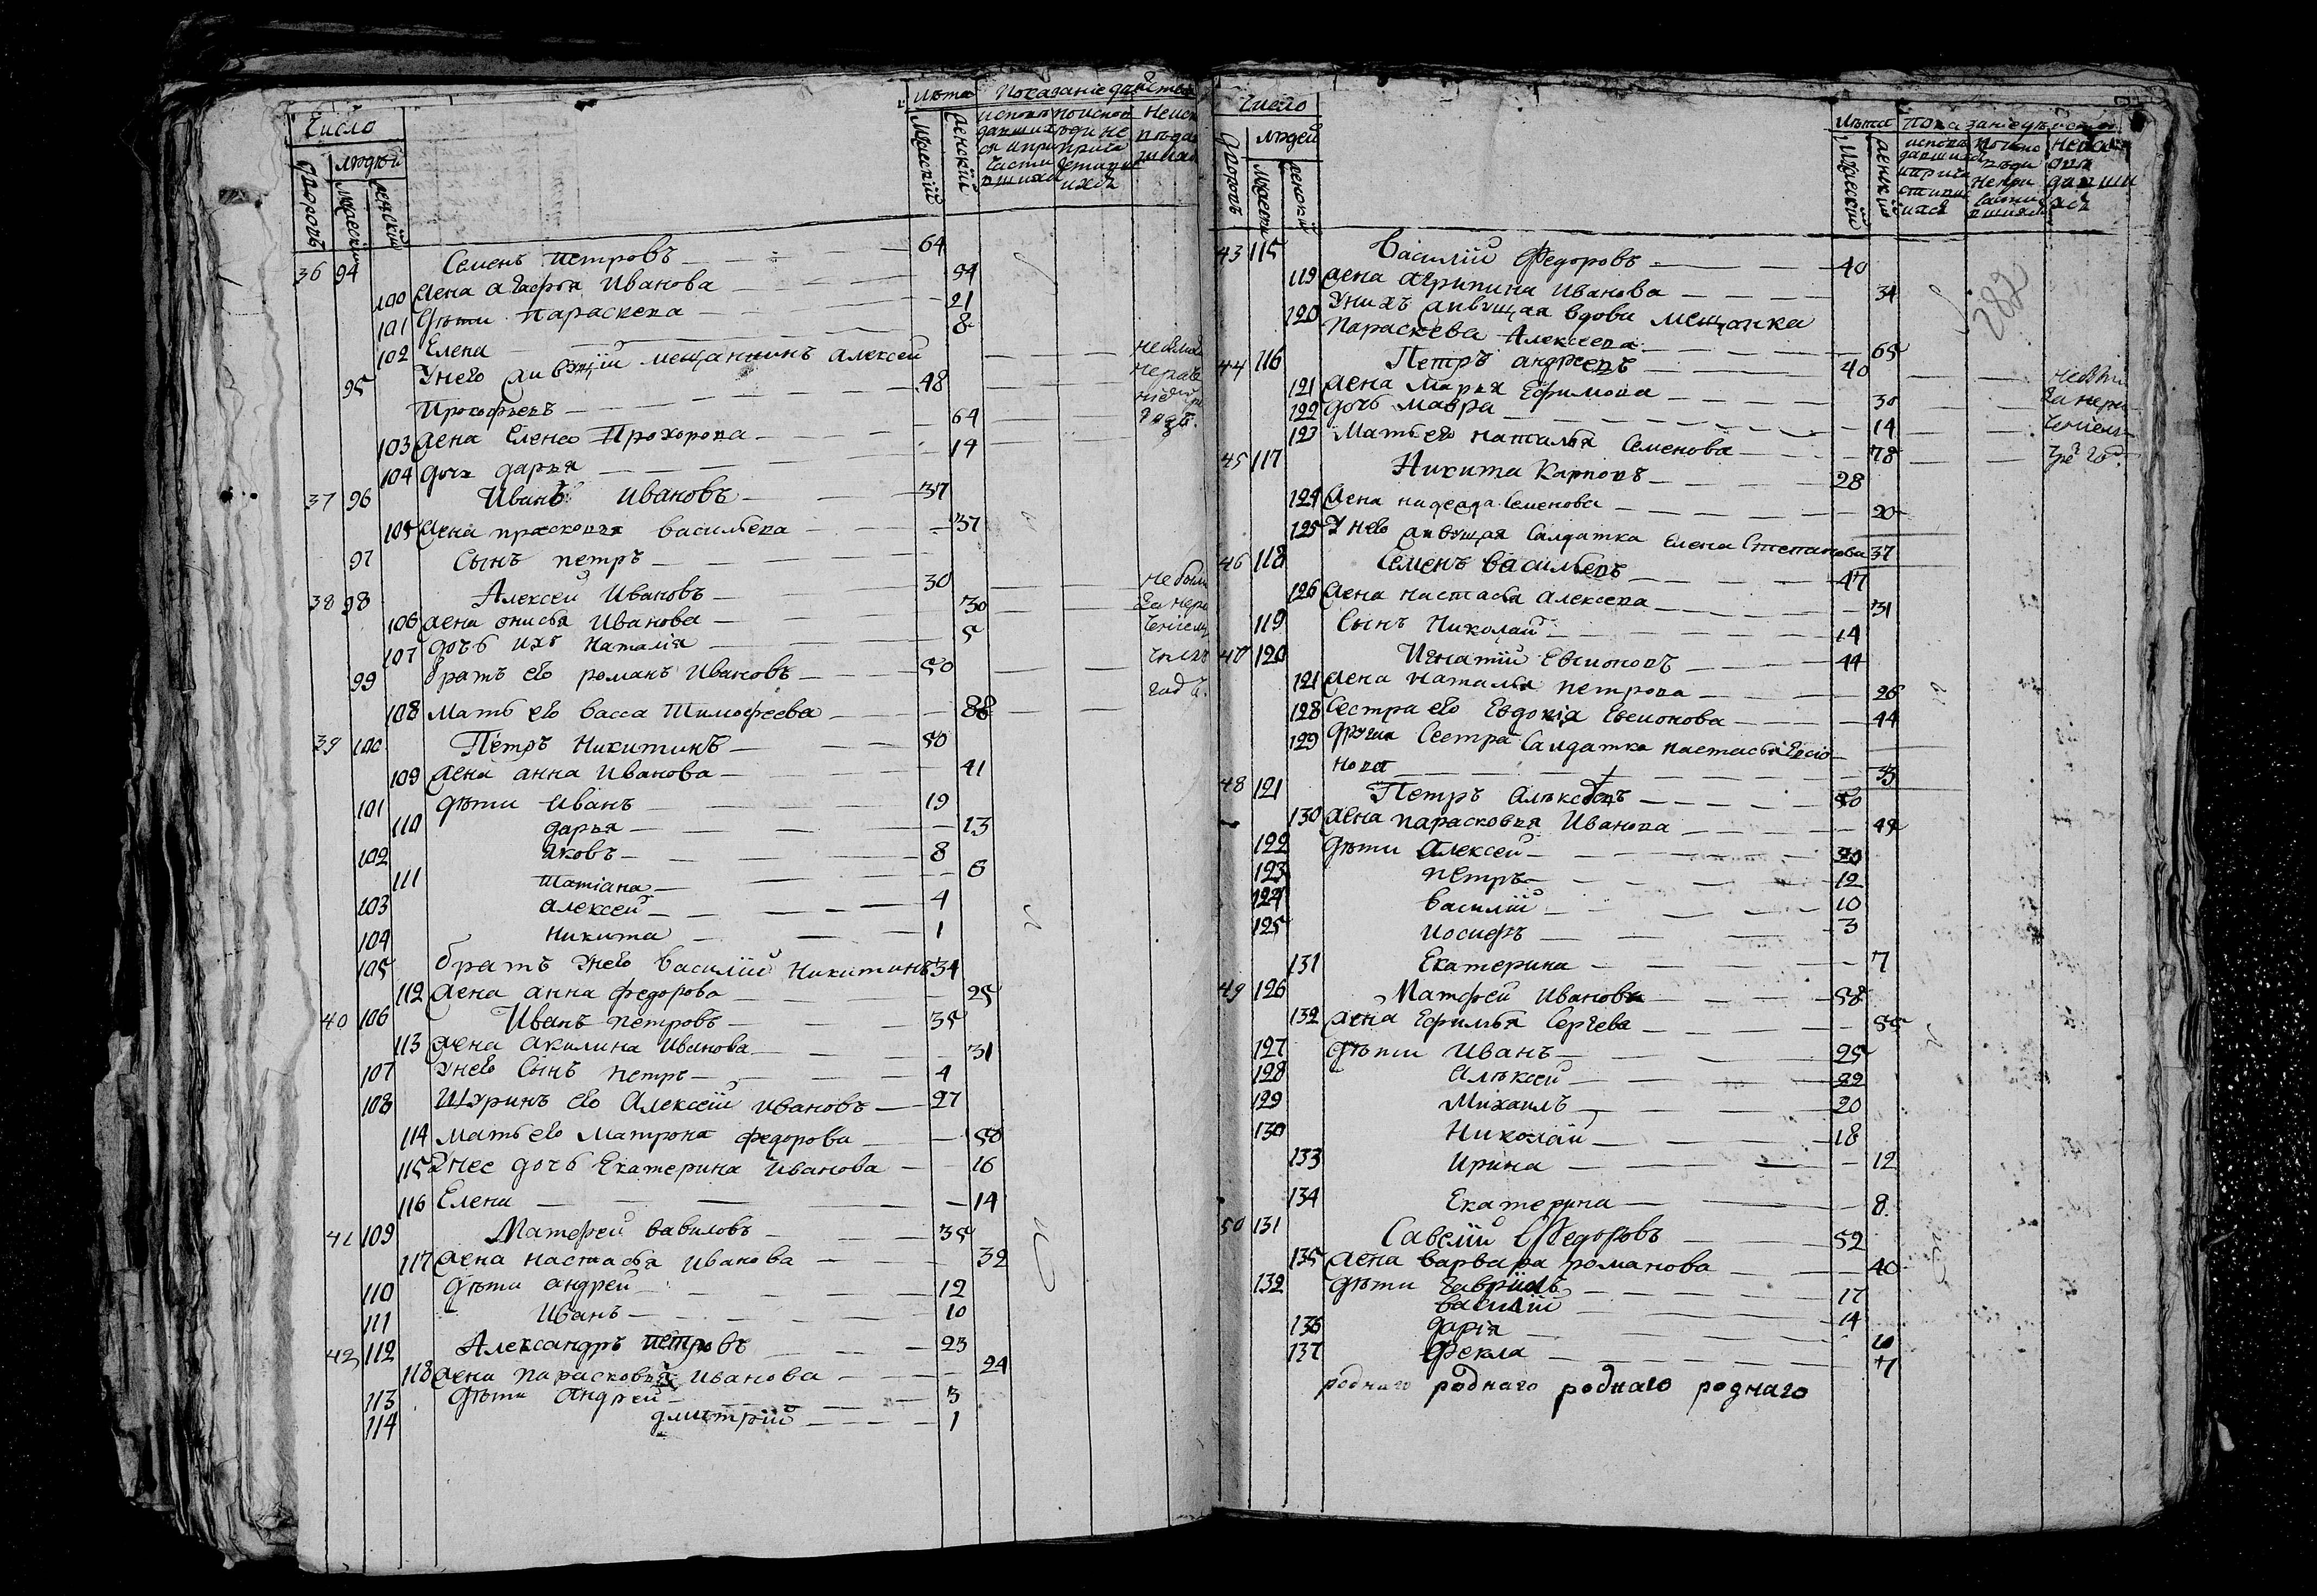 Число
людей
дворовъ
мужескій
женскій
лѣта
Показаніе дѣйства
мужескій
женскій
36 94 Семенъ Петровъ 64
100 жена Агафья Иванова 54
101 дѣти Параскева 21
102 Елена 8
95 У него живущій мещанинъ Алексей
Прокофьевъ 48
103 жена Елена Прохорова 64
104 дочь дарья 14
37 96 Иванъ Ивановъ 37
105 жена прасковья васильева 37
97 Сынъ петръ
38 98 Алексей Ивановъ 30
106 жена онисья Иванова 30
107 дочь ихъ Наталія 5
99 братъ его романъ Ивановъ 50
108 мать его Васса Тимофеева 88
39 100 Петръ Никитинъ 50
109 жена анна Иванова 41
101 дѣти Иванъ 19
110 дарья 13
102 яковъ 8
111 татіана 6
103 алексей 4
104 никита 1
105 братъ у него василій Никитинъ 34
112 жена анна федорова 25
40 106 Иванъ петровъ 35
113 жена акилина Иванова 31
107 У него Сынъ петръ 4
108 Шуринъ его Алексей Ивановъ 27
114 мать его Матрона федорова 50
115 У нее дочь Екатерина Иванова 16
116 Елена 14
41 109 Матфей вавиловъ 35
117 жена настасья Иванова 32
110 дѣти андрей 12
111 Иванъ 10
42 112 Александръ петровъ 23
118 жена парасковья Иванова 24
113 дѣти Андрей 3
114 дмитрій 1
Число
людей
дворовъ
мужескій
женскій
лѣта
Показаніе дѣйства
мужескій
женскій
282
43 115 Василій Федоровъ 40
119 жена агрипина Иванова 34
120 У нихъ живущая вдова мещанка
Параскева Алексеева 65
44 116 Петръ андреевъ 40
121 жена Марья Ефимова 30
122 дочь мавра 14
123 Мать его наталья Семенова 78
45 117 Никита Карповъ 28
124 жена надежда Семенова 20
125 У него живущая Салдатка Елена Степанова 37
46 118 Семенъ васильевъ 47
126 жена настасья алексева 31
119 Сынъ Николай 14
47 120 Игнатій Евсионовъ 44
121 жена наталья петрова 26
128 Сестра его Евдокія Евсионова 44
129 другая Сестра Салдатка настасья Евсио
нова 33
48 121 Петръ Алексеевъ 50
130 жена парасковья Иванова 49
122 дѣти Алексей 20
123 петръ 12
124 василій 10
125 иосифъ 3
131 Екатерина 7
49 126 Матфей Ивановъ 58
132 жена Ефимья Сергева 55
127 дѣти Иванъ 25
128 Алексей 22
129 Михаилъ 20
130 Николай 18
133 Ирина 12
134 Екатерина 8
50 131 Савелій Федоровъ 52
135 жена варвара романова 40
132 дѣти гавріилъ 17
василій 14
136 дарія 10
137 Фекла 7
роднаго роднаго роднаго роднаго